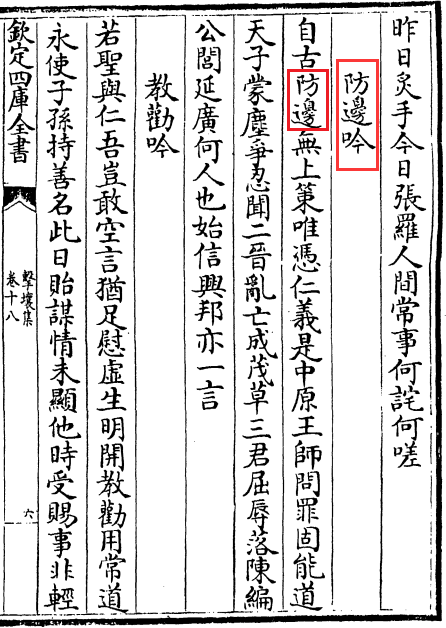 昨日炙手今日張羅人間常事何詫何嗟
防邊吟
自古防邊無上策唯憑仁義是中原王師問罪固能道
天子蒙塵爭忍聞二晉亂亡成茂草三君屈辱落陳編
公閭延廣何人也始信興邦亦一言
教勸吟
若聖與仁吾豈敢空言猶足慰虛生明開教勸用常道
永使子孫持善名此日貽謀情未顯他時受賜事非輕
欽定四庫全書
擊壤集
卷十八
六